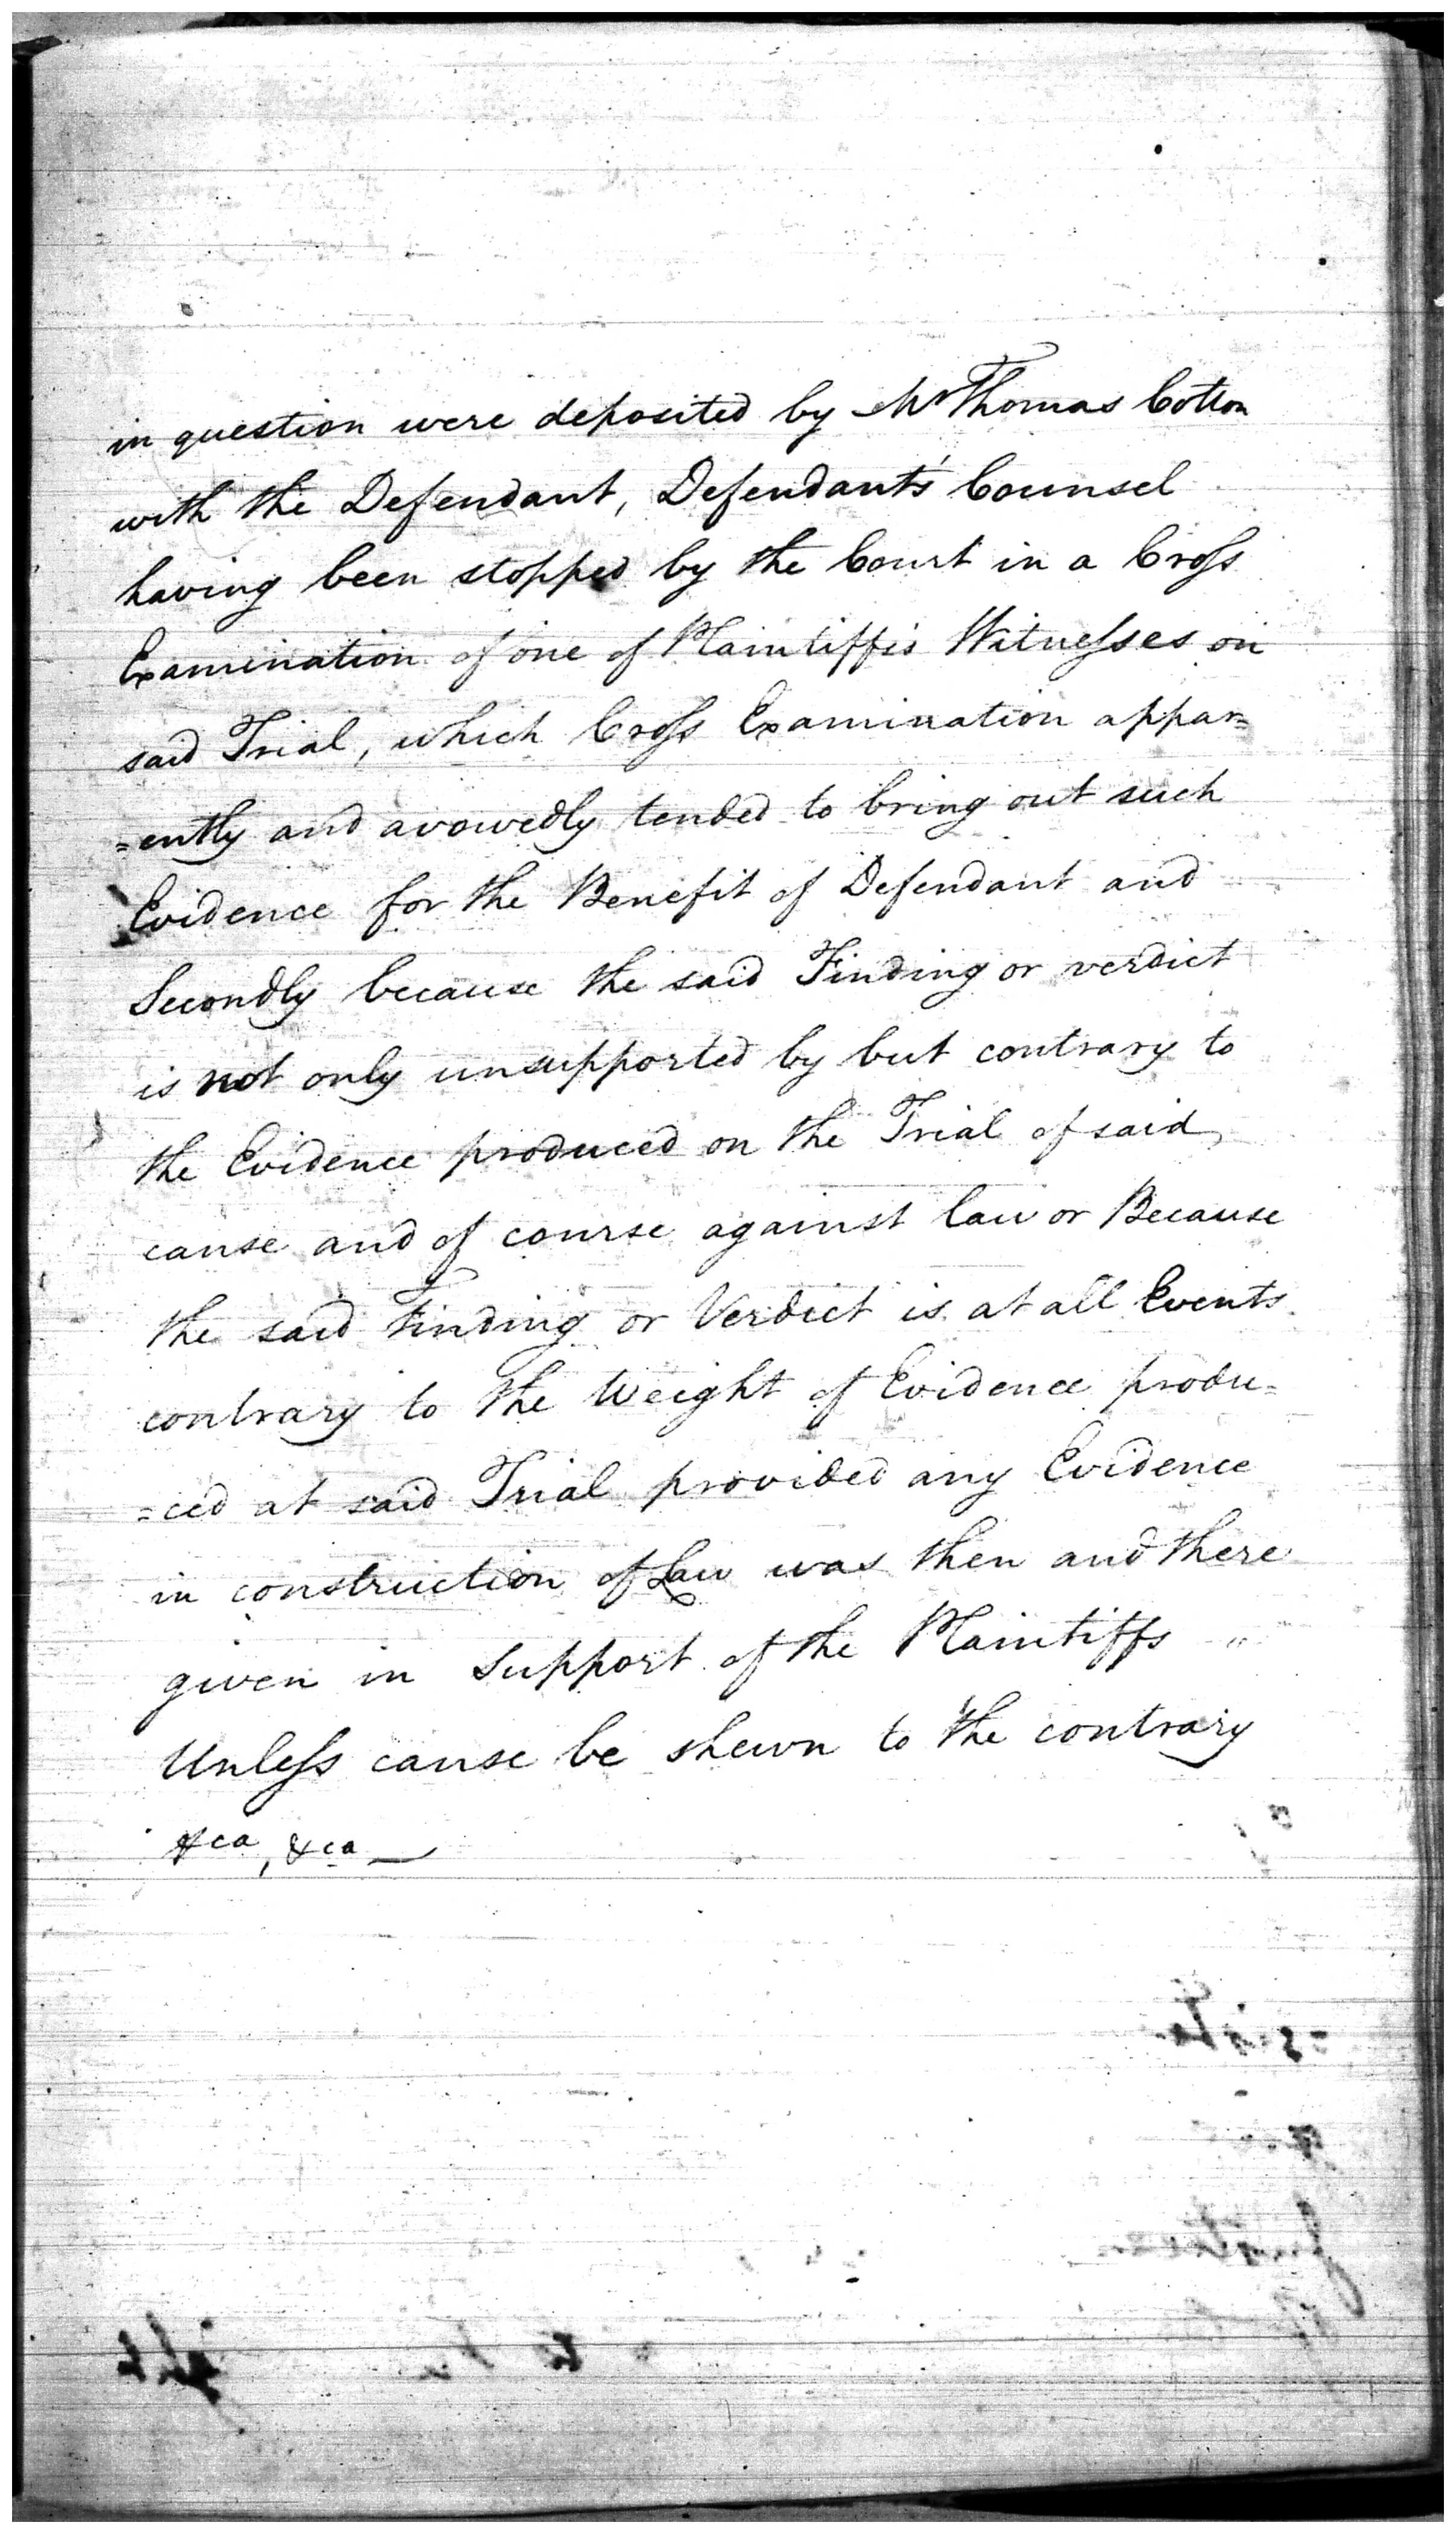 in question were deposited by Mr Thomas Cotton
with the Defendant, Defendant's Counsel
having been stopped by the Court in a Cross
Examination of one of Plaintiff's Witnesses on
said Trial, which Cross Examination appar=
=ently and avowedly tended to bring out such
Evidence for the Benefit of Defendant and
Secondly because the said Finding or verdict
is not only unsupported by but contrary to
the Evidence produced on the Trial of said
cause and of course against law or Because
the said Finding or Verdict is at all Events
contrary to the Weight of Evidence produ=
=ced at said Trial provided any Evidence
in construction of Law was then and there
given in Support of the Plaintiffs "
Unless cause be shewn to the contrary
&ca, &ca